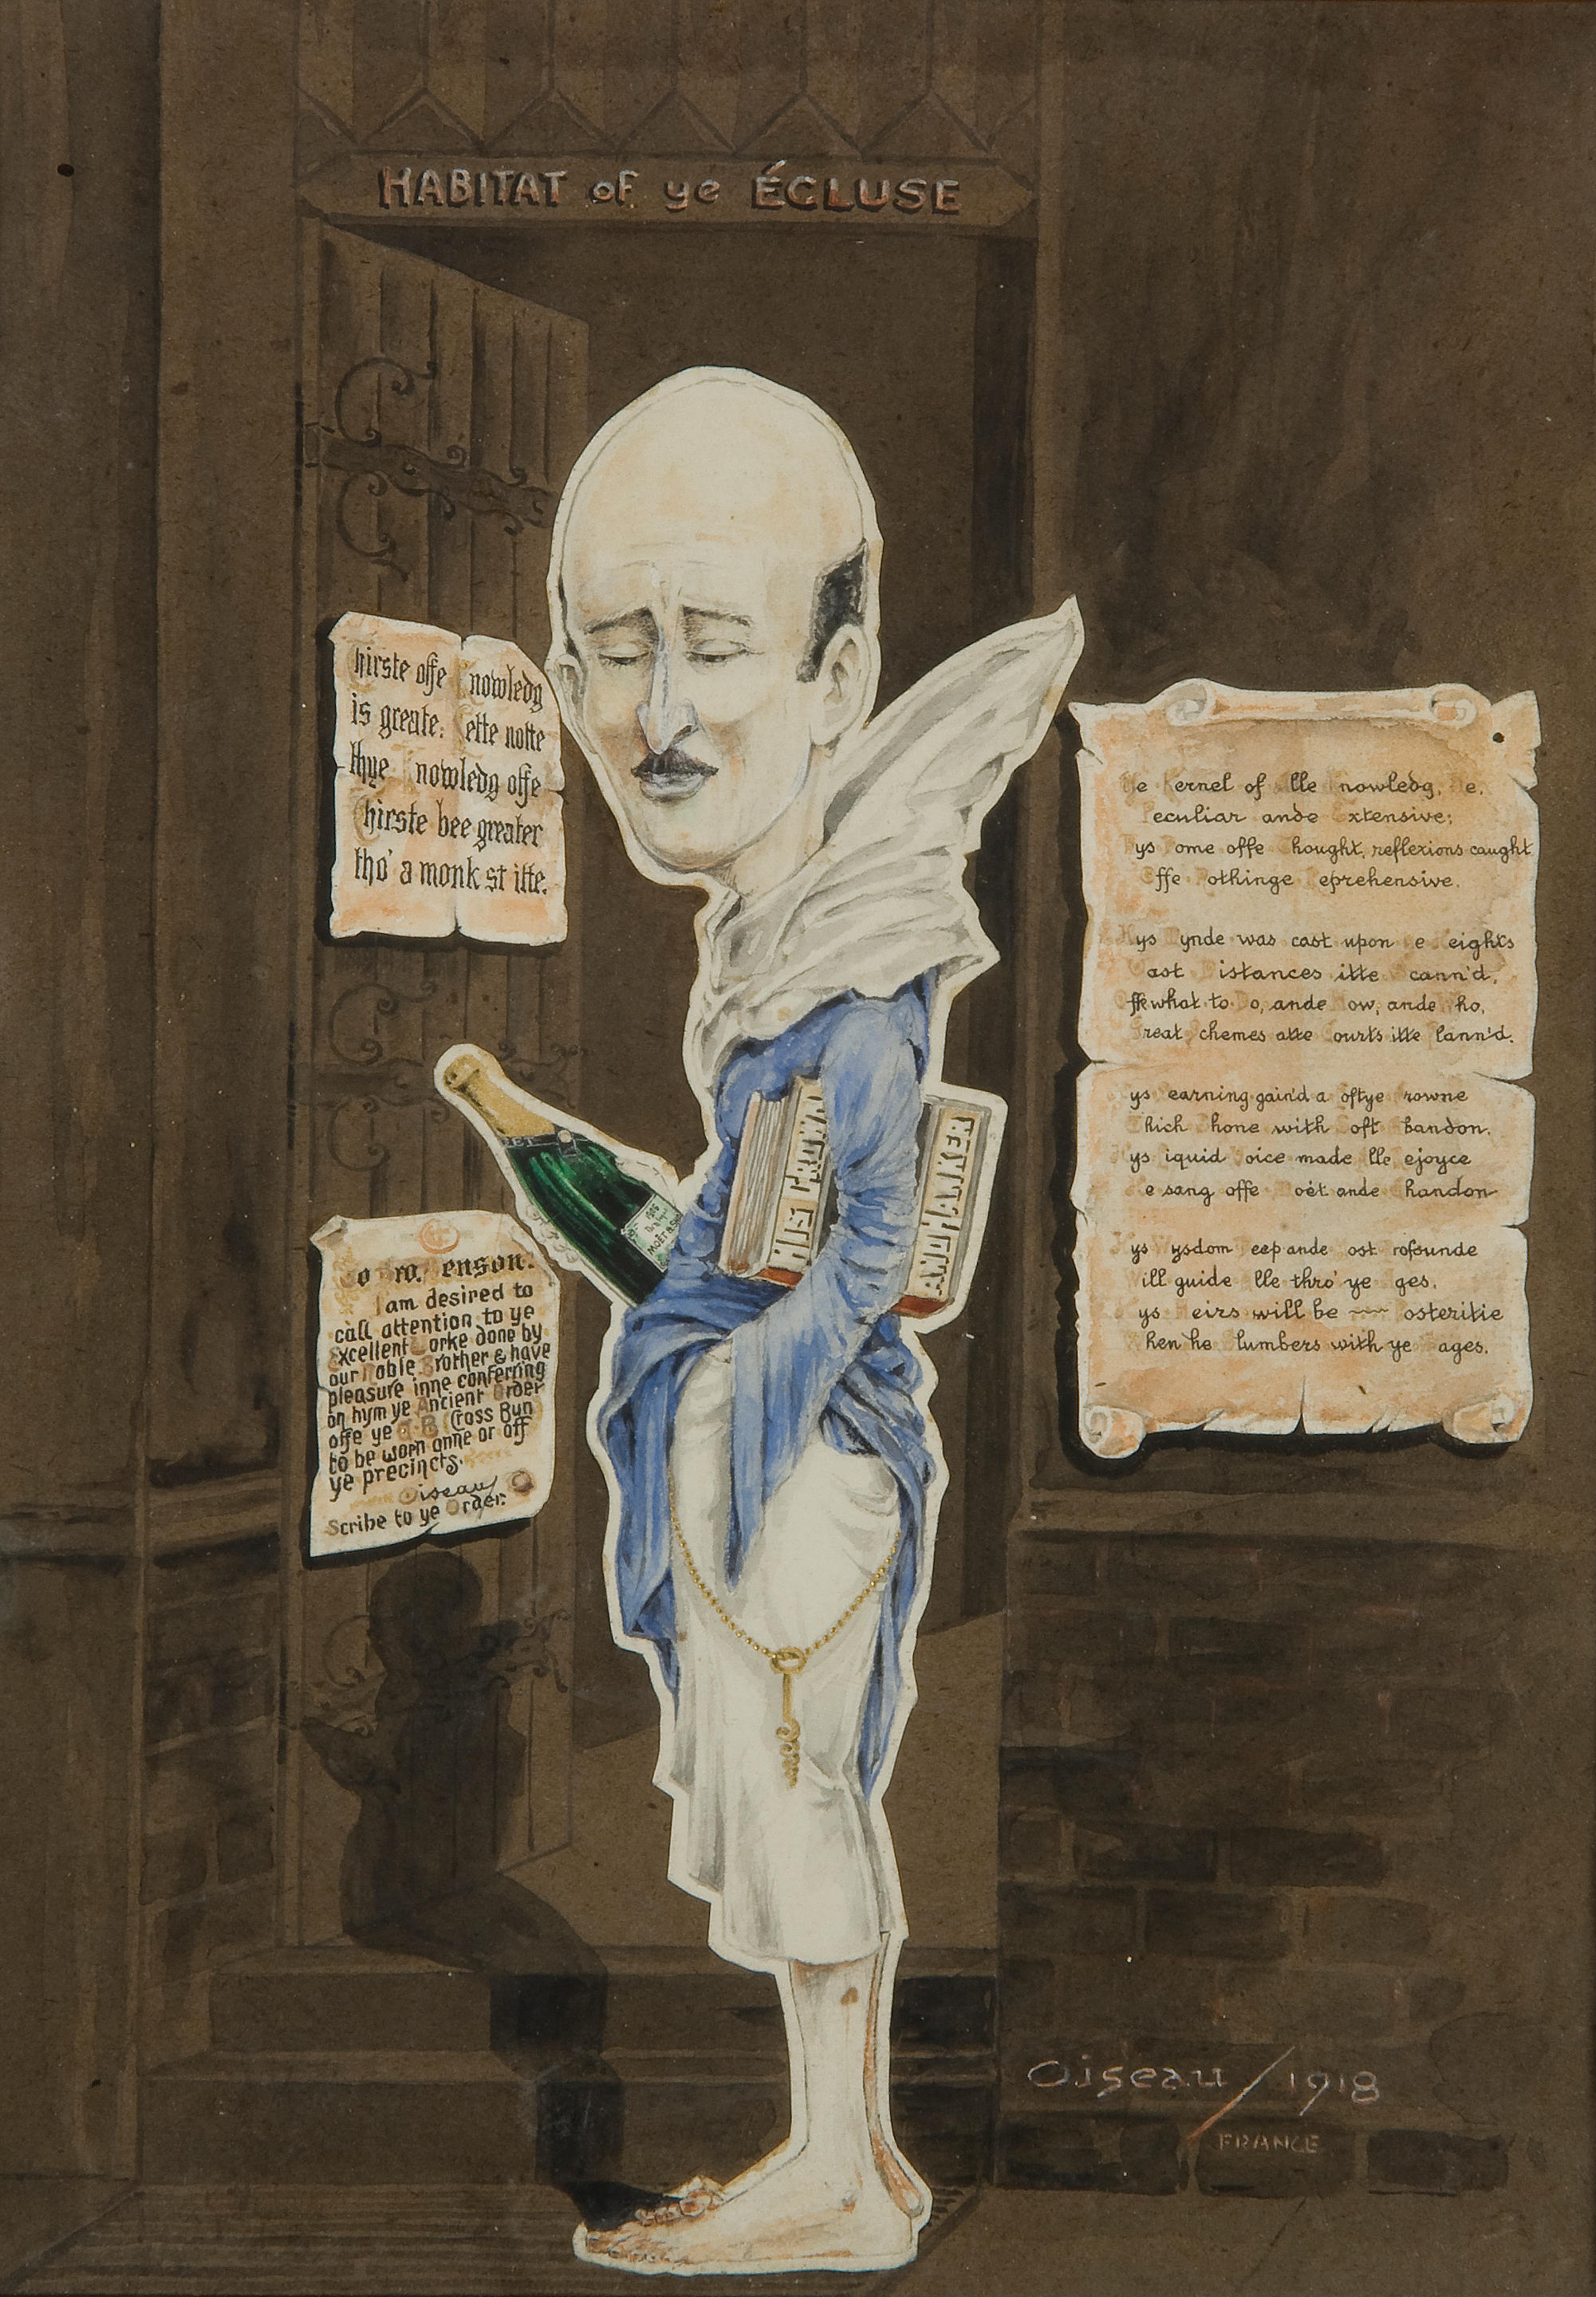 HABITAT of ye ÉCLUSE
Thirste offe Knowledg
is greate: Lette notte
thye Knowledg offe
Thirste bee greater
tho' a monk st itte.
To Bro. Benson:
I am desired to
call attention to ye
Excellent Worke done by
our Noble Brother & have
pleasure inne conferring
on hym ye Ancient Order
offe ye Cross Bun
to be worn onne or off
ye precincts.
Oiseau
Scribe to ye Order.
1906
MOËT &
HUIS CROWN
RESTMAHONAMA
Ye Kernel of alle Knowledg, He,
Peculiar ande Extensive;
Hys Dome offe Thought, reflexions caught
Offe Nothinge Reprehensive.
Hys Mynde was cast upon Ye Heights
Vast Distances itte Scann'd,
Offe what to Do, ande How, ande Who,
Great Schemes atte Courts itte Plann'd.
Hys Learning gain'd a Loftye Crowne
Which Shone with Soft Abandon.
Hys Liquid Voice made Alle Rejoyce
He sang offe Moët ande Chandon
Hys Wysdom Deep ande Most Profounde
Will guide Alle thro' ye Ages.
Hys Heirs will be Posteritie
When he Slumbers with ye Sages.
Oiseau / 1918
FRANCE